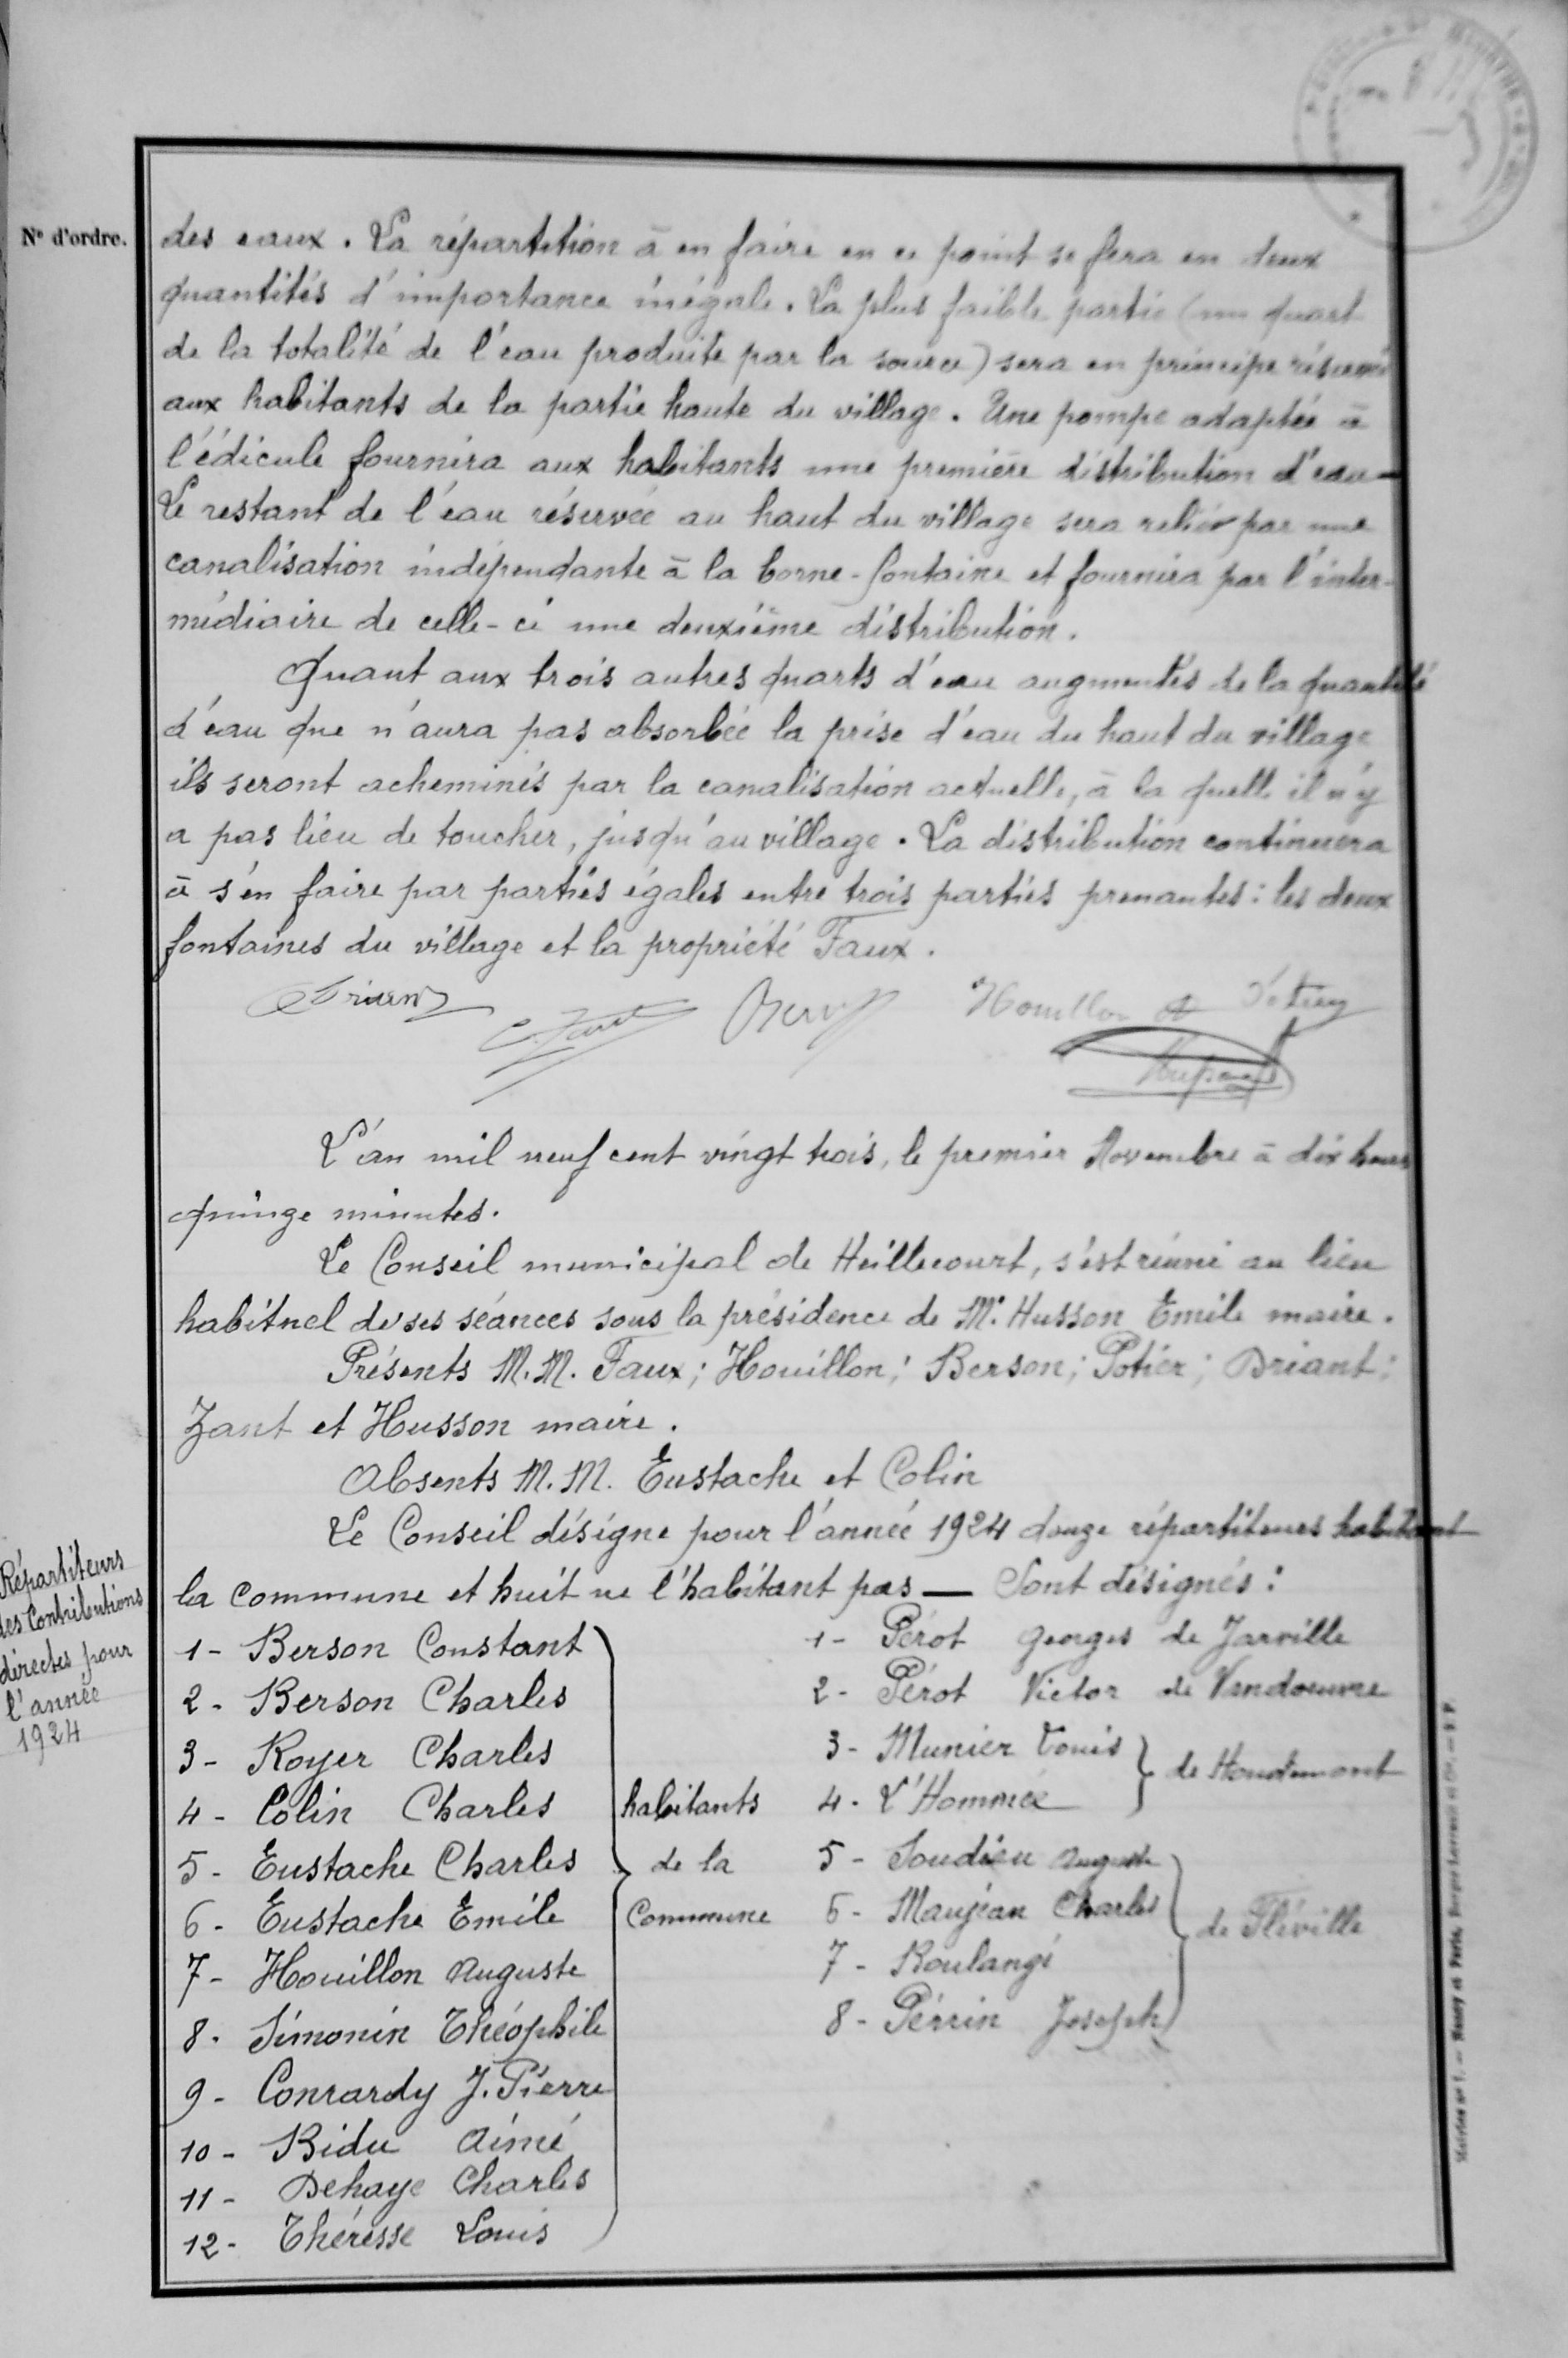 N° d'ordre.
des eaux. La répartition à en faire en ce point se fera en deux
quantités d'importance inégale. La plus faible partie (un quart
de la totalité de l'eau produite par la source) sera en principe réservé
aux habitants de la partie haute du village. Une pompe adaptée à
l'édicule fournira aux habitants une première distribution d'eau —
Le restant de l'éau réservée au haut du village sera reliée par une
canalisation indépendante à la borne-fontaine et fournira par l'inter-
médiaire de celle-ci une deuxième distribution.
Quant aux trois autres quarts d'eau augmentés de la quantité
d'eau que n'aura pas absorbée la prise d'eau du haut du village
ils seront acheminés par la canalisation actuelle, à la quelle il n'y
a pas lieu de toucher, jusqu'au village. La distribution continuera
à s'en faire par parties égales entre trois parties prenantes : les deux
fontaines du village et la propriété Faux.
Houillon
L'an mil neuf cent vingt trois, le premier Novembre à dix heures
quinze minutes.
Le Conseil municipal de Heillecourt, s'est réuni au lieu
habituel de ses séances sous la présidence de Mr. Husson Emile maire.
Présents M.M. Faux; Houillon; Berson; Potier; Briant;
Zant et Husson maire.
Absents M.M. Eustache et Colin
Le Conseil désigne pour l'année 1924 douze répartiteurs habitant
la commune et huit ne l'habitant pas — Sont désignés :
Répartiteurs
des Contributions
directes pour
l'année
1924
1 - Berson Constant
2 - Berson Charles
3 - Royer Charles
4 - Colin Charles
5 - Eustache Charles
6 - Eustache Emile
7 - Houillon Auguste
8 - Simonin Théophile
9 - Conrardy J. Pierre
10 - Bidu Aimé
11 - Dehaye Charles
12 - Théresse Louis
habitants
de la
Commune
1 - Pérot Georges de Jarville
2 - Pérot Victor de Vandoeuvre
3 - Munier Louis
4 - L'Hommée
de Houdemont
5 - Soudieu Auguste
6 - Maujean Charles
7 - Boulangé
8 - Périn Joseph
de Fléville